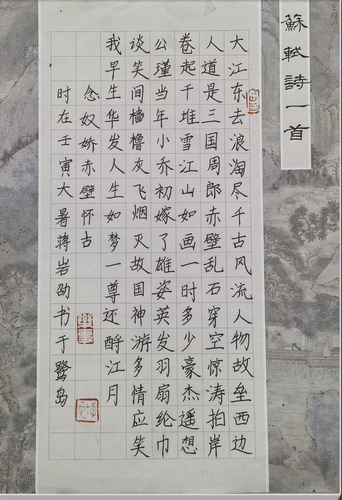 蘇軾詩一首
大江东去浪淘尽千古风流人物故垒西边
人道是三国周郎赤壁乱石穿空惊涛拍岸
卷起千堆雪江山如画一时多少豪杰遥想
公瑾当年小乔初嫁了雄姿英发羽扇纶巾
谈笑间樯橹灰飞烟灭故国神游多情应笑
我早生华发人生如梦一尊还酹江月
念奴娇赤壁怀古
时在壬寅大暑蒋岩劭书于鹭岛